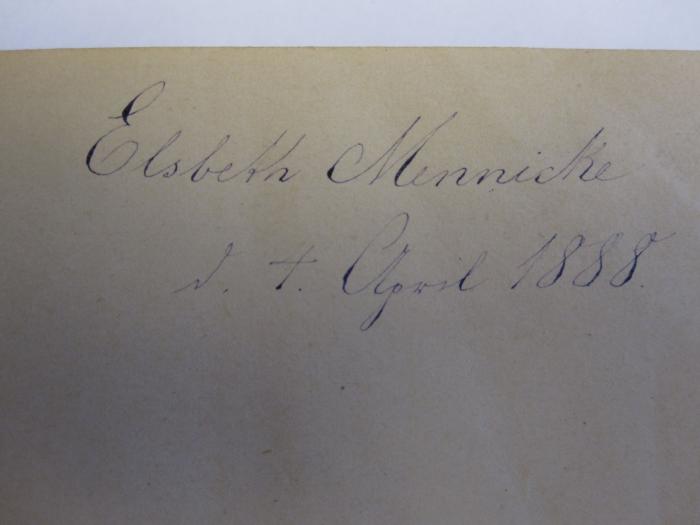 Elsbeth Mennicke
d. 4. April 1888.